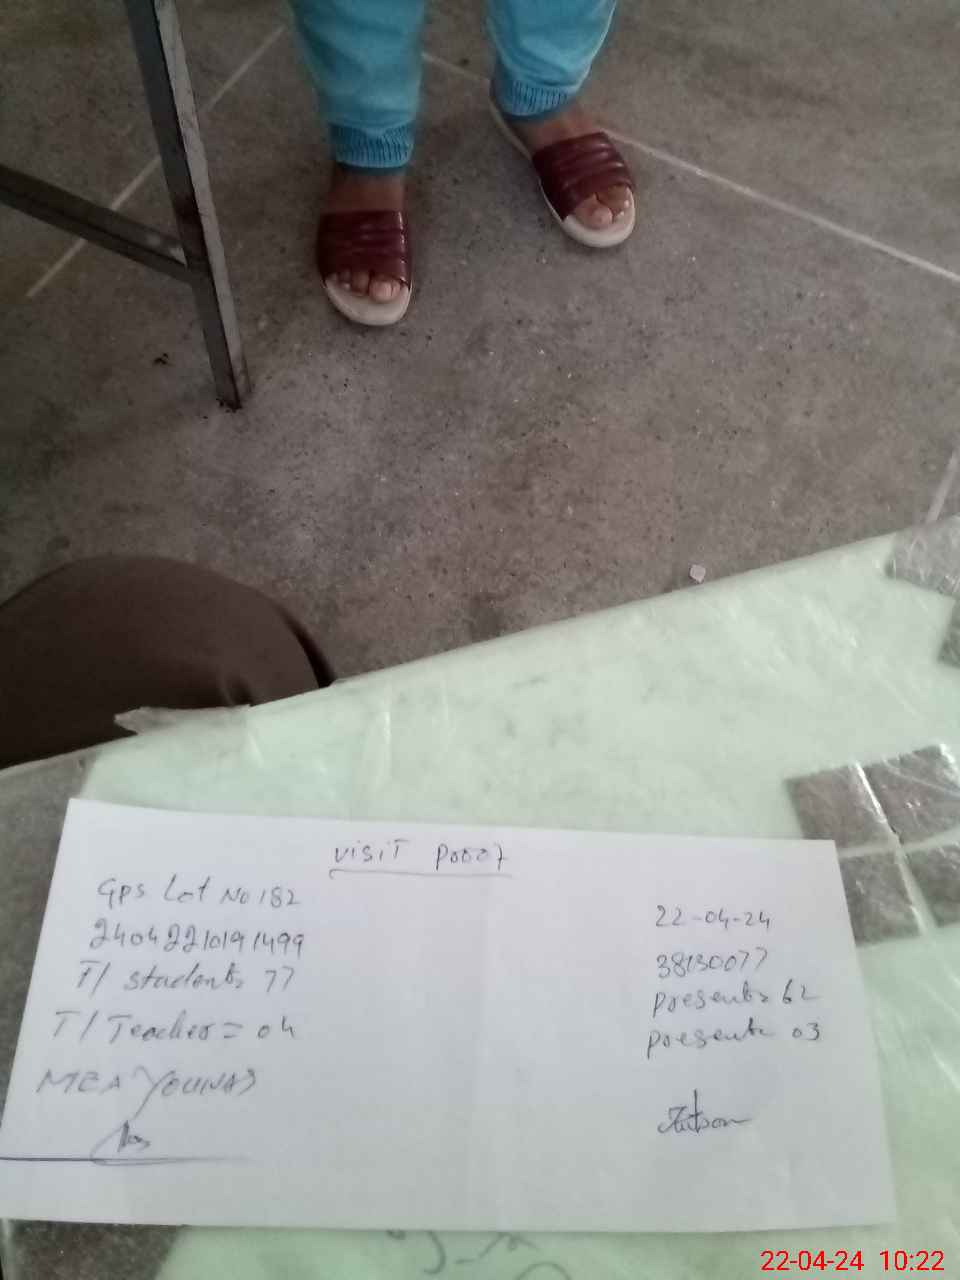 VISIT Proof
GPS Lot No 182
22-04-24
24042210191499
38130077
T/ students 77
Present= 62
T/ Teacher = 04
present= 03
MEA YOUNAS
22-04-24 10:22